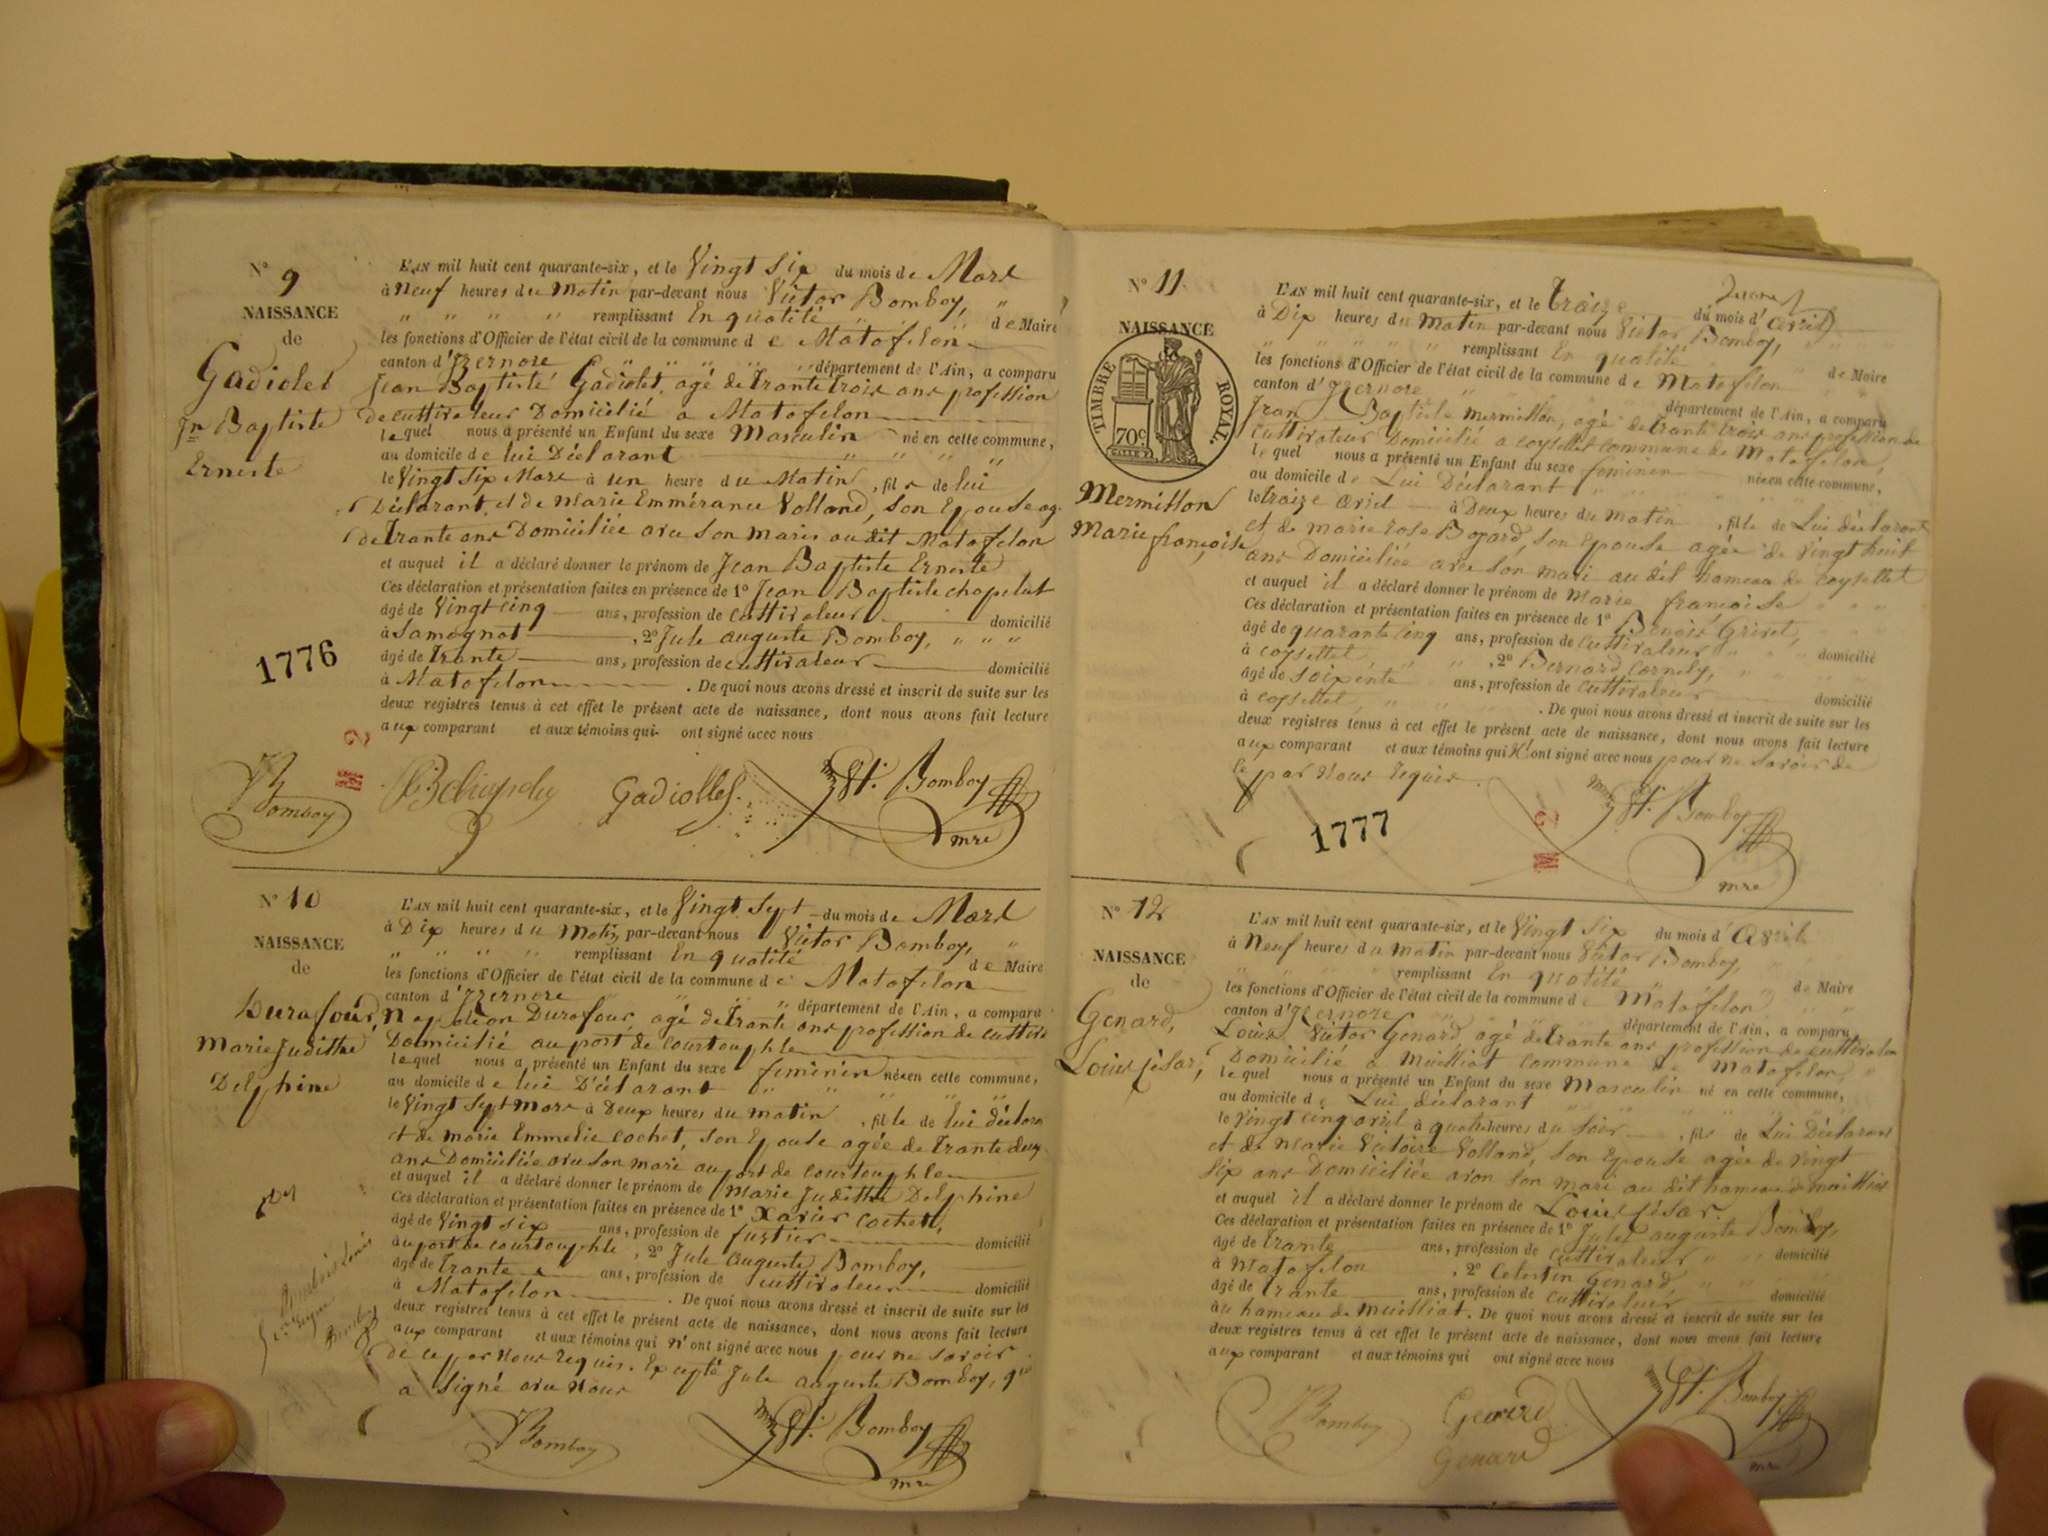 N° 9
NAISSANCE
de
Gadiolet
Jn Baptiste
Erneste
L'AN mil huit cent quarante-six, et le Vingt Six du mois de Mars
à Neuf heures du Matin par-devant nous Victor Bomboy,
remplissant En qualité de Maire
les fonctions d'Officier de l'état civil de la commune de Matafelon
canton d'Izernore département de l'Ain, a comparu
Jean Baptiste Gadiolet, agé de trante trois ans profession
de cuttivateur Domicilié a Matafelon
lequel nous a présenté un Enfant du sexe Masculin né en cette commune,
au domicile de lui Déclarant
le Vingt Six Mars à un heure du Matin, fils de lui
Déclarant, et de Marie Emmérance Volland, son Epouse ag.
de trante ans Domiciliée avec son maris au dit Matafelon
et auquel il a déclaré donner le prénom de Jean Baptiste Erneste
Ces déclaration et présentation faites en présence de 1° Jean Baptiste chapelut
âgé de Vingt cinq ans, profession de cuttivateur domicilié
à Samognat, 2° Jule auguste Bomboy,
âgé de trante ans, profession de cuttivateur domicilié
à Matafelon. De quoi nous avons dressé et inscrit de suite sur les
deux registres tenus à cet effet le présent acte de naissance, dont nous avons fait lecture
aux comparant et aux témoins qui ont signé avec nous
1776
Bomboy Gadiollet St. Bomboy
mre
N° 10
NAISSANCE
de
Durafour,
Marie Juditthe
Delphine
L'AN mil huit cent quarante-six, et le Vingt Sept du mois de Mars
à Dix heures du Matin par-devant nous Victor Bomboy,
remplissant En qualité de Maire
les fonctions d'Officier de l'état civil de la commune de Matafelon
canton d'Izernore département de l'Ain, a comparu
Napoléon Durafour, agé de trante ans profession de cuttiva
Domicilié au port de courtouphle
lequel nous a présenté un Enfant du sexe feminin née en cette commune,
au domicile de lui Déclarant
le Vingt Sept Mars à Deux heures du matin, fille de lui déclara
et de marie Emmelie cochet, son Epouse agée de trante deux
ans Domiciliée avec son marié au port de courtouphle
et auquel il a déclaré donner le prénom de Marie Juditthe Delphine
Ces déclaration et présentation faites en présence de 1° Xavier cochet,
âgé de Vingt six ans, profession de fustier domicilié
au port de courtouphle, 2° Jule auguste Bomboy,
âgé de trante ans, profession de cuttivateur domicilié
à Matafelon. De quoi nous avons dressé et inscrit de suite sur les
deux registres tenus à cet effet le présent acte de naissance, dont nous avons fait lecture
aux comparant et aux témoins qui n'ont signé avec nous pour ne savoir
de ce par Nous requis. Excepté Jule auguste Bomboy, qui
a Signé avec Nous
Bomboy St. Bomboy
mre
N° 11
NAISSANCE
TIMBRE ROYAL.
70c
Mermillon
Marie françoise
L'AN mil huit cent quarante-six, et le traize du mois d'avril
à Dix heures du Matin par-devant nous Victor Bomboy,
remplissant En qualité de Maire
les fonctions d'Officier de l'état civil de la commune de Matafelon
canton d'Izernore département de l'Ain, a comparu
Jean Baptiste mermillon, agé de trante trois ans profession de
cuttivateur Domicilié a coysellet commune de Matafelon,
lequel nous a présenté un Enfant du sexe feminin née en cette commune,
au domicile de Lui Déclarant
le traize avril à Deux heures du matin, fille de Lui déclarant
et de marie rose Bogard, son Epouse agée de Vingt huit
ans Domiciliée avec son mari au dit hameau de coysellet
et auquel il a déclaré donner le prénom de Marie françoise
Ces déclaration et présentation faites en présence de 1° Benoit Grivet,
âgé de quarante cinq ans, profession de cuttivateur domicilié
à coysellet, 2° Bernard Cornely,
âgé de soixente ans, profession de cuttivateur domicilié
à coysellet, . De quoi nous avons dressé et inscrit de suite sur les
deux registres tenus à cet effet le présent acte de naissance, dont nous avons fait lecture
aux comparant et aux témoins qui N'ont signé avec nous pour ne savoir de
ce par Nous requis.
1777
St. Bomboy
mre
N° 12
NAISSANCE
de
Genard,
Louis césar,
L'AN mil huit cent quarante-six, et le Vingt Six du mois d'avril
à Neuf heures du matin par-devant nous Victor Bomboy,
remplissant En qualité de Maire
les fonctions d'Officier de l'état civil de la commune de Matafelon
canton d'Izernore département de l'Ain, a comparu
Louis Victor Genard, agé de trante ans profession de cuttivateur
Domicilié a Muilliat commune de Matafelon,
lequel nous a présenté un Enfant du sexe Masculin né en cette commune,
au domicile de Lui déclarant
le Vingt cinq avril à quatre heures du Soir, fils de Lui Déclarant
et de Marie Victoire Volland, son Epouse agée de Vingt
Six ans Domiciliée avec son mari au dit hameau de muilliat
et auquel il a déclaré donner le prénom de Louis césar
Ces déclaration et présentation faites en présence de 1° Jules auguste Bomboy,
âgé de trante ans, profession de cuttivateur domicilié
à Matafelon, 2° Celestin Genard
âgé de trante ans, profession de cuttivateur domicilié
au hameau de Muilliat. De quoi nous avons dressé et inscrit de suite sur les
deux registres tenus à cet effet le présent acte de naissance, dont nous avons fait lecture
aux comparant et aux témoins qui ont signé avec nous
Bomboy Genard St. Bomboy
Genard mre